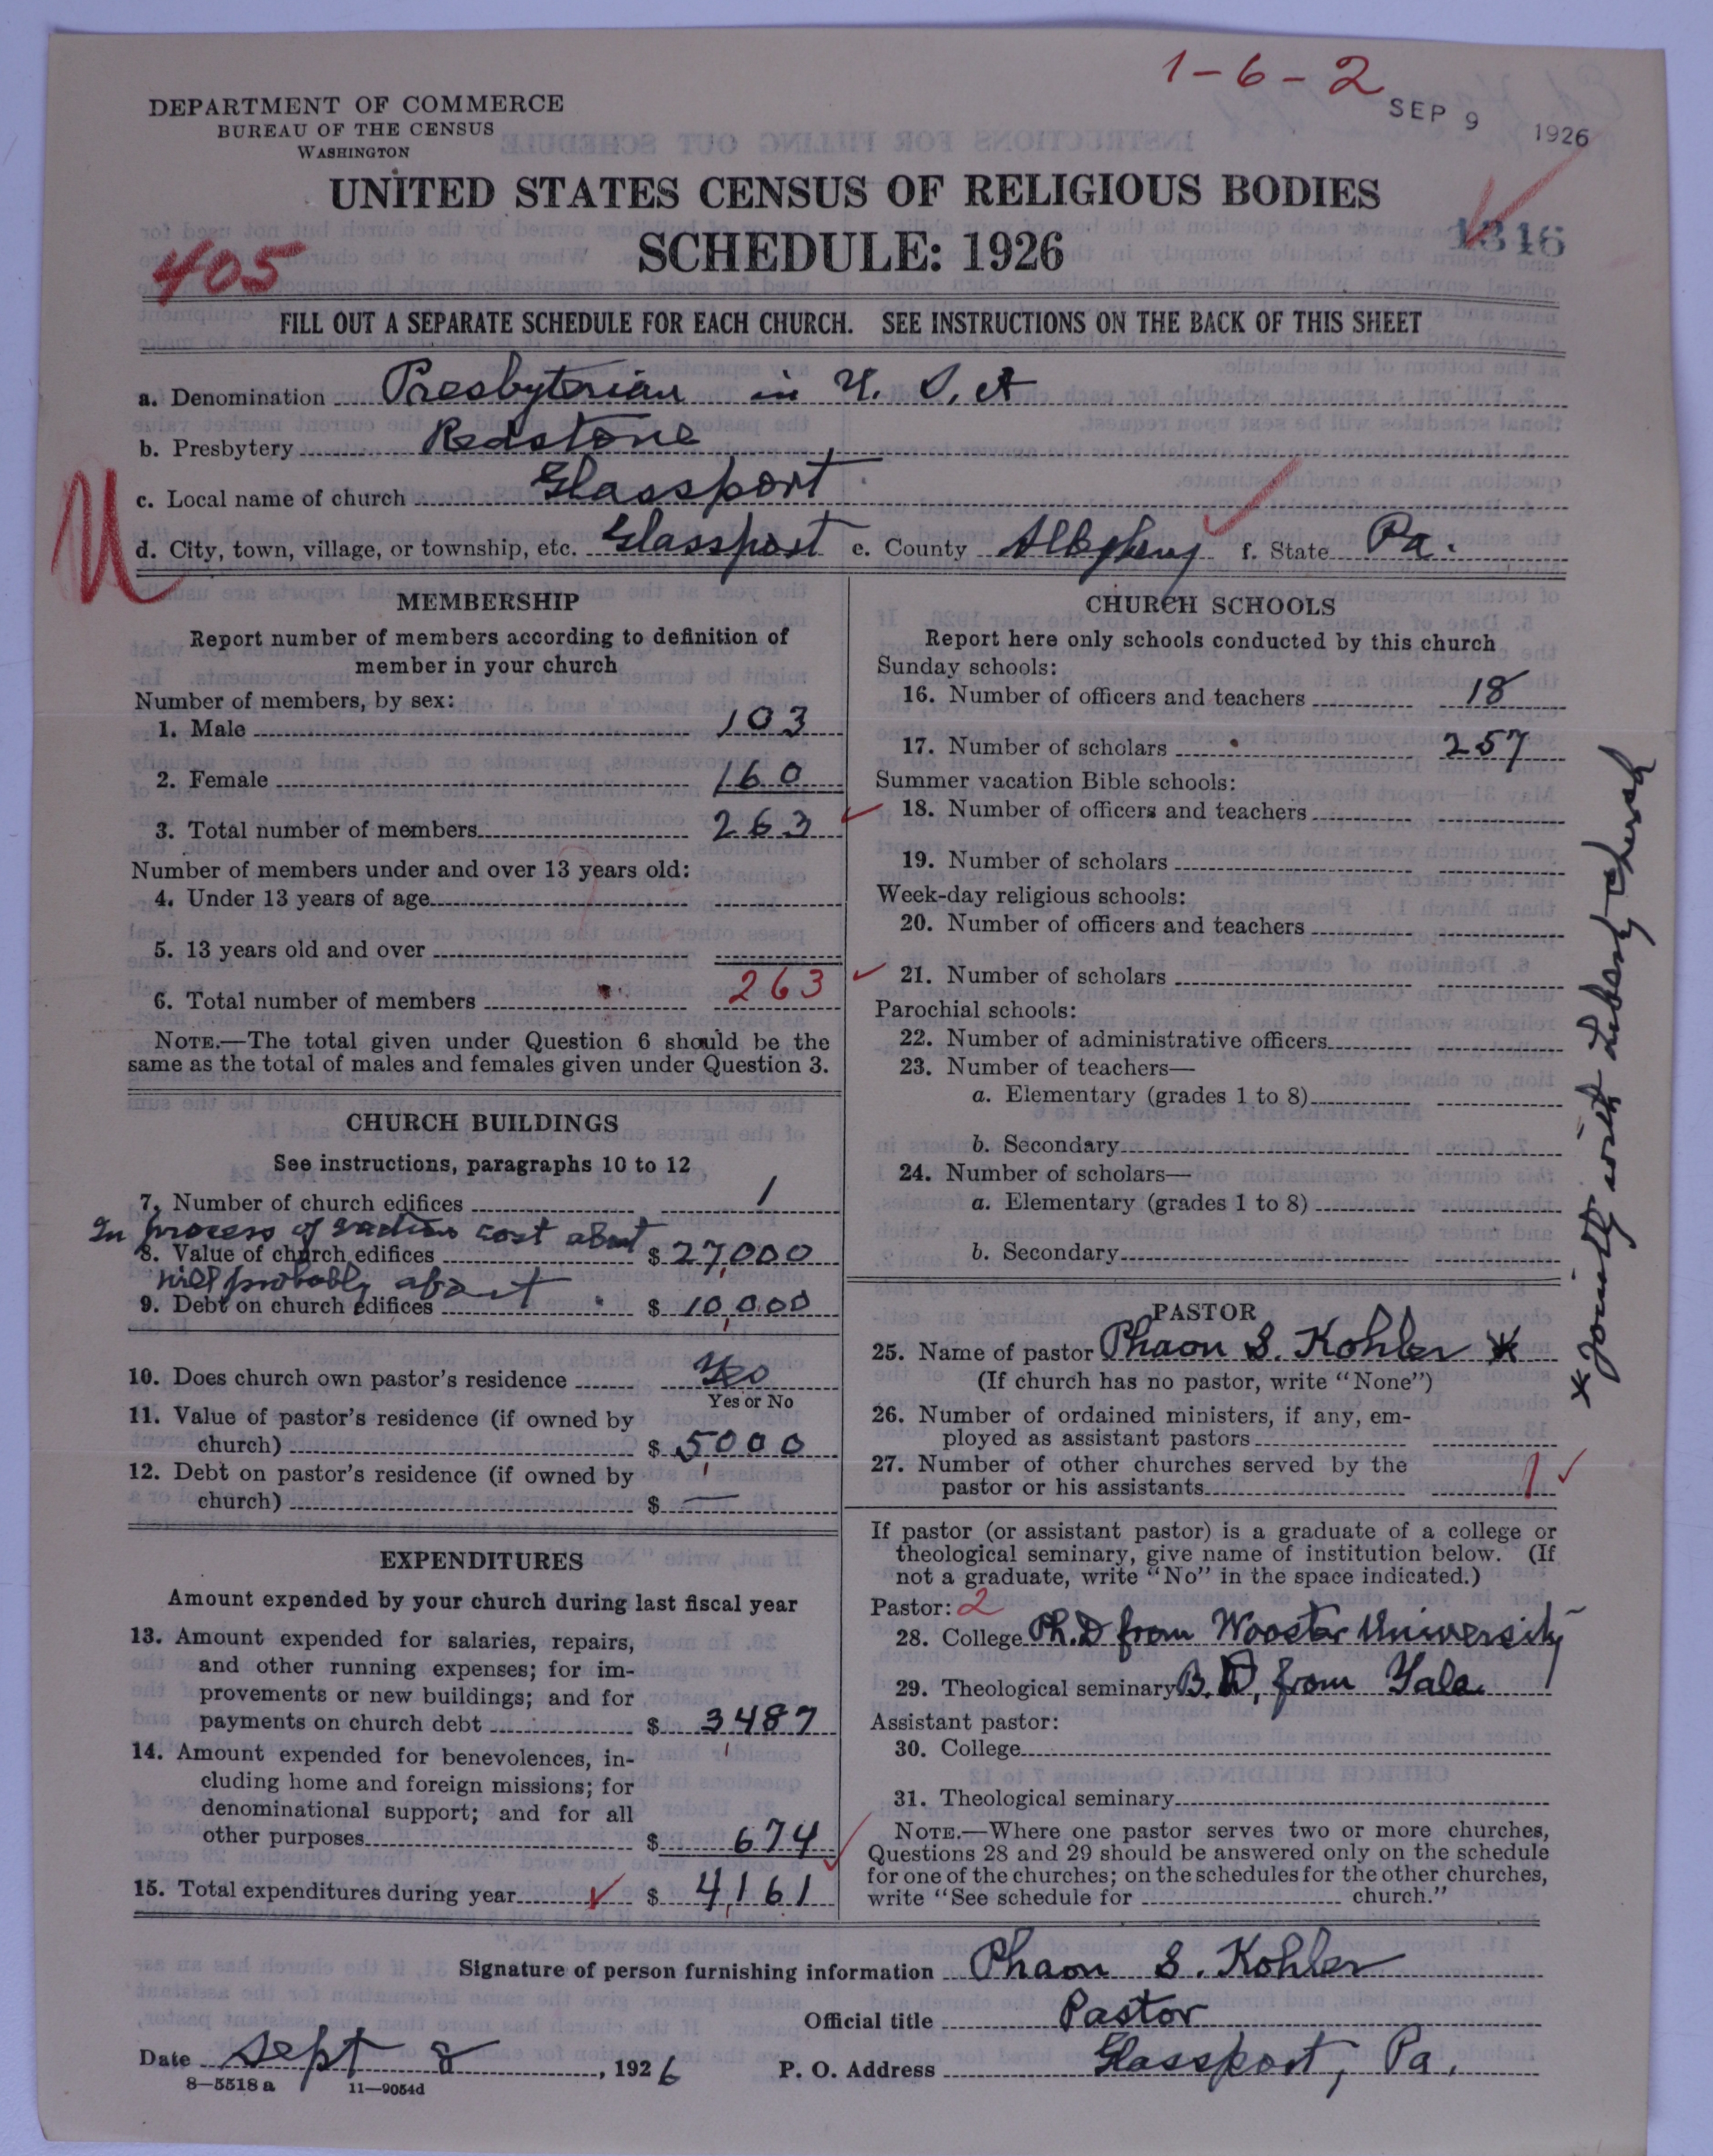 1-6-2
SEP 9 1926
DEPARTMENT OF COMMERCE
BUREAU OF THE CENSUS
WASHINGTON
UNITED STATES CENSUS OF RELIGIOUS BODIES
SCHEDULE: 1926
405
1346
FILL OUT A SEPARATE SCHEDULE FOR EACH CHURCH. SEE INSTRUCTIONS ON THE BACK OF THIS SHEET
a. Denomination Presbyterian in U. S. A
b. Presbytery Redstone
c. Local name of church Glassport
d. City, town, village, or township, etc. Glassport e. County Allegheny f. State Pa.
MEMBERSHIP
Report number of members according to definition of
member in your church
Number of members, by sex:
1. Male 103
2. Female 160
3. Total number of members 263
Number of members under and over 13 years old:
4. Under 13 years of age
5. 13 years old and over
6. Total number of members 263
NOTE.—The total given under Question 6 should be the
same as the total of males and females given under Question 3.
CHURCH BUILDINGS
See instructions, paragraphs 10 to 12
7. Number of church edifices 1
In process of cost about
8. Value of church edifices $ 27,000
will probably about
9. Debt on church edifices $ 10,000
10. Does church own pastor's residence Yes
Yes or No
11. Value of pastor's residence (if owned by
church) $ 5000
12. Debt on pastor's residence (if owned by
church) $ —
EXPENDITURES
Amount expended by your church during last fiscal year
13. Amount expended for salaries, repairs,
and other running expenses; for im-
provements or new buildings; and for
payments on church debt $ 3487
14. Amount expended for benevolences, in-
cluding home and foreign missions; for
denominational support; and for all
other purposes $ 674
15. Total expenditures during year $ 4,161
CHURCH SCHOOLS
Report here only schools conducted by this church
Sunday schools:
16. Number of officers and teachers 18
17. Number of scholars 257
Summer vacation Bible schools:
18. Number of officers and teachers
19. Number of scholars
Week-day religious schools:
20. Number of officers and teachers
21. Number of scholars
Parochial schools:
22. Number of administrative officers
23. Number of teachers—
a. Elementary (grades 1 to 8)
b. Secondary
24. Number of scholars—
a. Elementary (grades 1 to 8)
b. Secondary
PASTOR
25. Name of pastor Phaon S. Kohler *
(If church has no pastor, write "None")
26. Number of ordained ministers, if any, em-
ployed as assistant pastors
27. Number of other churches served by the
pastor or his assistants 1
* Jointly with Liberty church
If pastor (or assistant pastor) is a graduate of a college or
theological seminary, give name of institution below. (If
not a graduate, write "No" in the space indicated.)
Pastor: 2
28. College Ph.D from Wooster University
29. Theological seminary B.D, from Yale
Assistant pastor:
30. College
31. Theological seminary
NOTE.—Where one pastor serves two or more churches,
Questions 28 and 29 should be answered only on the schedule
for one of the churches; on the schedules for the other churches,
write "See schedule for church."
Signature of person furnishing information Phaon S. Kohler
Official title Pastor
Date Sept 8, 1926 P. O. Address Glassport, Pa.
8—5518a 11—9054d